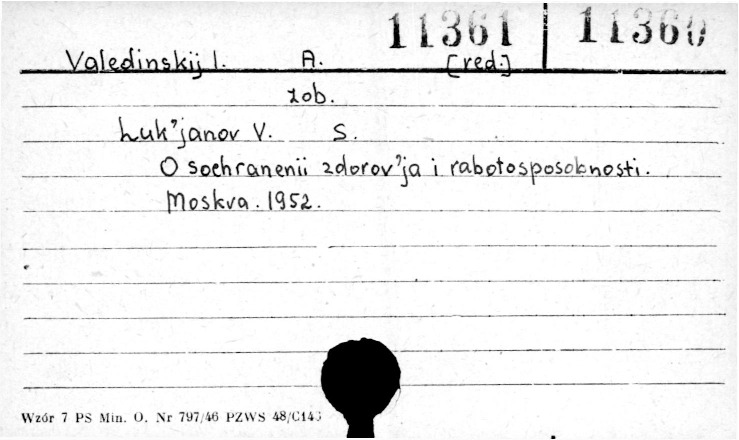 11361 | 11360
Valedinskij I. A. [red.]
zob.
Luk'janov V. S.
O sochranenii zdorov'ja i rabotosposobnosti.
Moskva. 1952.
Wzór 7 PS Min. O. Nr 797/46 PZWS 48/C146